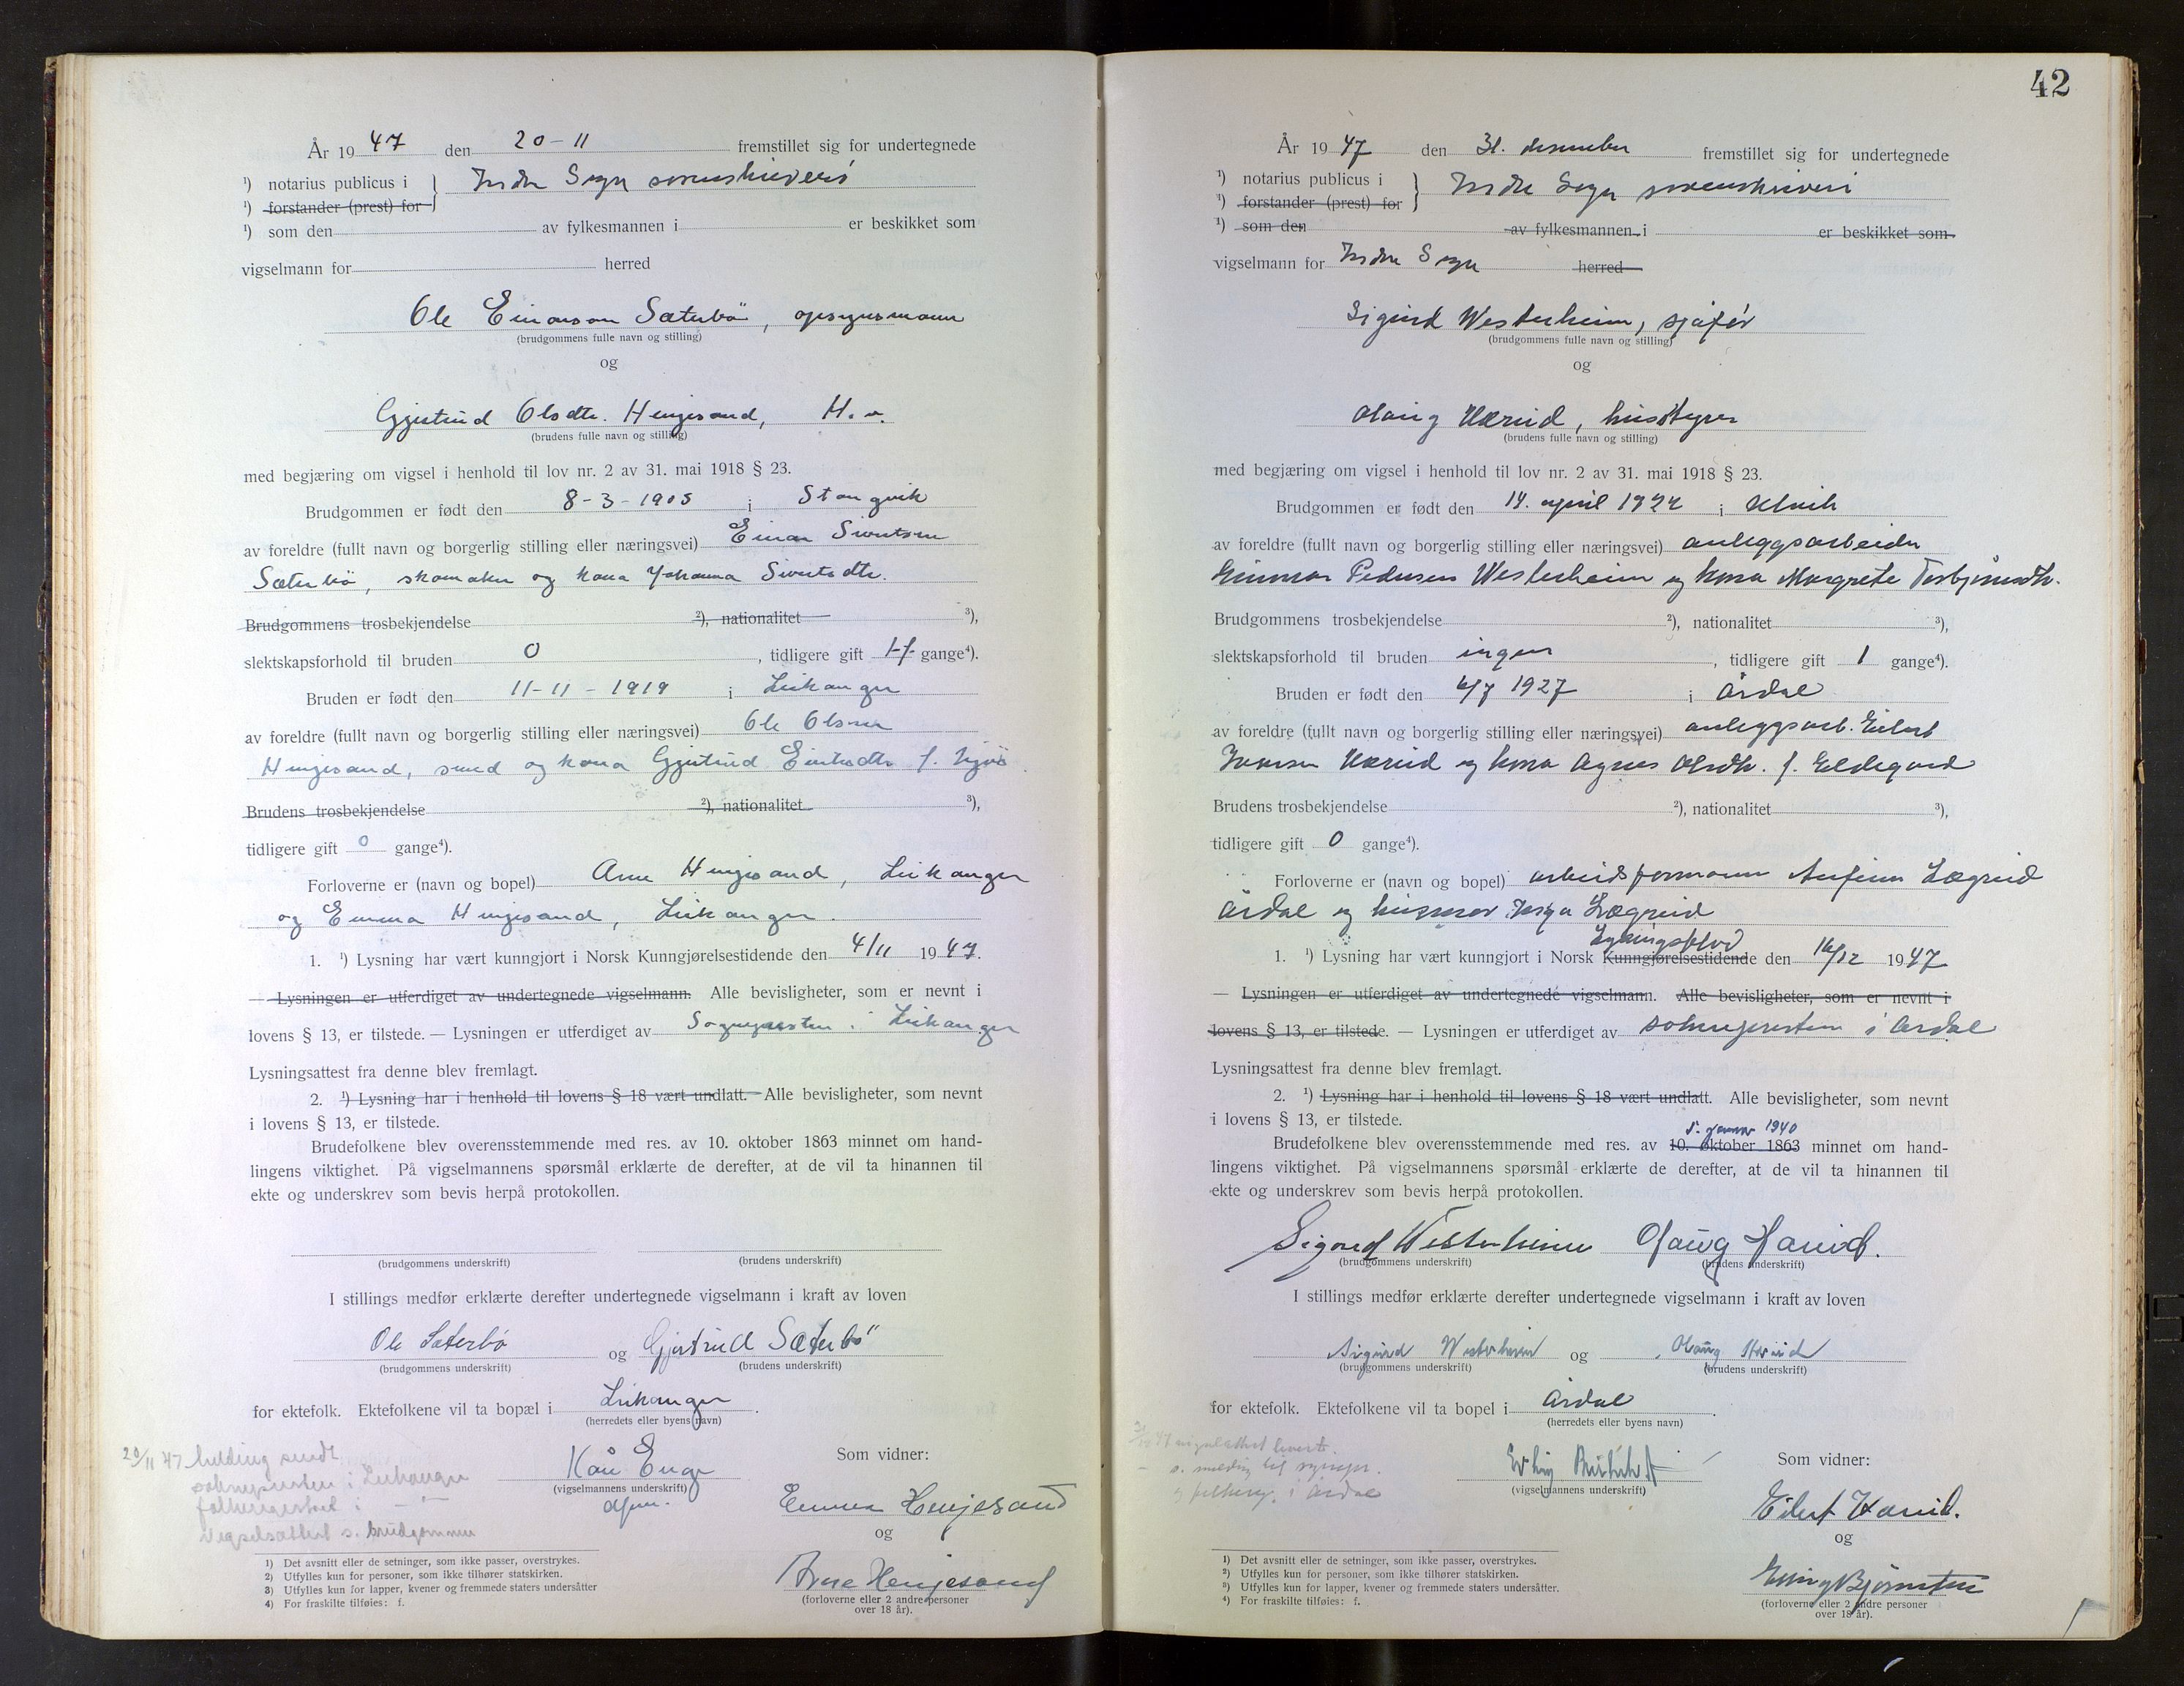 År 19 47 den 20-11 fremstillet sig for undertegnede
¹) notarius publicus i } Indre Sogn sorenskriveri
¹) forstander (prest) for
¹) som den av fylkesmannen i er beskikket som
vigselmann for herred
Ole Einarson Sæterbö, opsynsmann
(brudgommens fulle navn og stilling)
og
Gjertrud Olsdtr. Henjesand, H.v.
(brudens fulle navn og stilling)
med begjæring om vigsel i henhold til lov nr. 2 av 31. mai 1918 § 23.
Brudgommen er født den 8-3-1905 i Stangvik
av foreldre (fullt navn og borgerlig stilling eller næringsvei) Einar Sivertsen
Sæterbö, skomaker og kona Johanna Sivertsdtr.
Brudgommens trosbekjendelse ²), nationalitet ³),
slektskapsforhold til bruden 0, tidligere gift 1 f. gange⁴).
Bruden er født den 11-11-1919 i Leikanger
av foreldre (fullt navn og borgerlig stilling eller næringsvei) Ole Olsen
Henjesand, smed og kona Gjertrud f.
Brudens trosbekjendelse ²), nationalitet ³),
tidligere gift 0 gange⁴).
Forloverne er (navn og bopel) Arne Henjesand, Leikanger
og Emma Henjesand, Leikanger.
1. ¹) Lysning har vært kunngjort i Norsk Kunngjørelsestidende den 4/11 1947.
— Lysningen er utferdiget av undertegnede vigselmann. Alle bevisligheter, som er nevnt i
lovens § 13, er tilstede. — Lysningen er utferdiget av Sogneprsten i Leikanger
Lysningsattest fra denne blev fremlagt.
2. ¹) Lysning har i henhold til lovens § 18 vært undlatt. Alle bevisligheter, som nevnt
i lovens § 13, er tilstede.
Brudefolkene blev overensstemmende med res. av 10. oktober 1863 minnet om hand-
lingens viktighet. På vigselmannens spørsmål erklærte de derefter, at de vil ta hinannen til
ekte og underskrev som bevis herpå protokollen.
(brudgommens underskrift) (brudens underskrift)
I stillings medfør erklærte derefter undertegnede vigselmann i kraft av loven
Ole Sæterbö og Gjertrud Sæterbö
(brudgommens underskrift) (brudens underskrift)
for ektefolk. Ektefolkene vil ta bopæl i Leikanger.
(herredets eller byens navn)
20/11 47 melding sendt
soknepresten i Leikanger
folkeregistret i — " —
Vigselsattest s. brudgommen
Kåre Enge
(vigselmannens underskrift)
Som vidner:
Emma Henjesand
og
Arne Henjesand
(forloverne eller 2 andre personer
over 18 år).
1) Det avsnitt eller de setninger, som ikke passer, overstrykes.
2) Utfylles kun for personer, som ikke tilhører statskirken.
3) Utfylles kun for lapper, kvener og fremmede staters undersåtter
4) For fraskilte tilføies: f.
42
År 19 47 den 31. desember fremstillet sig for undertegnede
¹) notarius publicus i } Indre Sogn sorenskriveri
¹) forstander (prest) for
¹) som den av fylkesmannen i er beskikket som
vigselmann for Indre Sogn herred
Sigurd Westerheim, sjåfør
(brudgommens fulle navn og stilling)
og
Olaug Hæreid, hus
(brudens fulle navn og stilling)
med begjæring om vigsel i henhold til lov nr. 2 av 31. mai 1918 § 23.
Brudgommen er født den 14. april 1922 i Ulvik
av foreldre (fullt navn og borgerlig stilling eller næringsvei) anleggsarbeider
Gunnar Pedersen Westerheim og kona Margrete Torbjörnsdtr.
Brudgommens trosbekjendelse ²), nationalitet ³),
slektskapsforhold til bruden ingen, tidligere gift 1 gange⁴).
Bruden er født den 6/7 1927 i Årdal
av foreldre (fullt navn og borgerlig stilling eller næringsvei) anleggsarb. Eilert
Iversen Hæreid og kona Agnes Olsdtr. f. Eldegard
Brudens trosbekjendelse ²), nationalitet ³),
tidligere gift 0 gange⁴).
Forloverne er (navn og bopel) arbeidsformann Arfinn Lægreid
Årdal og husmor Inga Lægreid
1. ¹) Lysning har vært kunngjort i Norsk Kunngjørelsestidende Lysingsblad den 16/12 1947
— Lysningen er utferdiget av undertegnede vigselmann. Alle bevisligheter, som er nevnt i
lovens § 13, er tilstede. — Lysningen er utferdiget av soknepresten i Årdal
Lysningsattest fra denne blev fremlagt.
2. ¹) Lysning har i henhold til lovens § 18 vært undlatt. Alle bevisligheter, som nevnt
i lovens § 13, er tilstede.
5. januar 1940
Brudefolkene blev overensstemmende med res. av 10. oktober 1863 minnet om hand-
lingens viktighet. På vigselmannens spørsmål erklærte de derefter, at de vil ta hinannen til
ekte og underskrev som bevis herpå protokollen.
Sigurd Westerheim Olaug Hæreid.
(brudgommens underskrift) (brudens underskrift)
I stillings medfør erklærte derefter undertegnede vigselmann i kraft av loven
Sigurd Westerheim og Olaug Hæreid
(brudgommens underskrift) (brudens underskrift)
for ektefolk. Ektefolkene vil ta bopel i Årdal.
(herredets eller byens navn)
47 vigselattest
s. melding til sognepr.
og folkereg. i Årdal
(vigselmannens underskrift)
Som vidner:
Eilert Hæreid.
og
(forloverne eller 2 andre personer
over 18 år).
¹) Det avsnitt eller de setninger, som ikke passer, overstrykes.
²) Utfylles kun for personer, som ikke tilhører statskirken.
³) Utfylles kun for lapper, kvener og fremmede staters undersåtter.
⁴) For fraskilte tilføies: f.